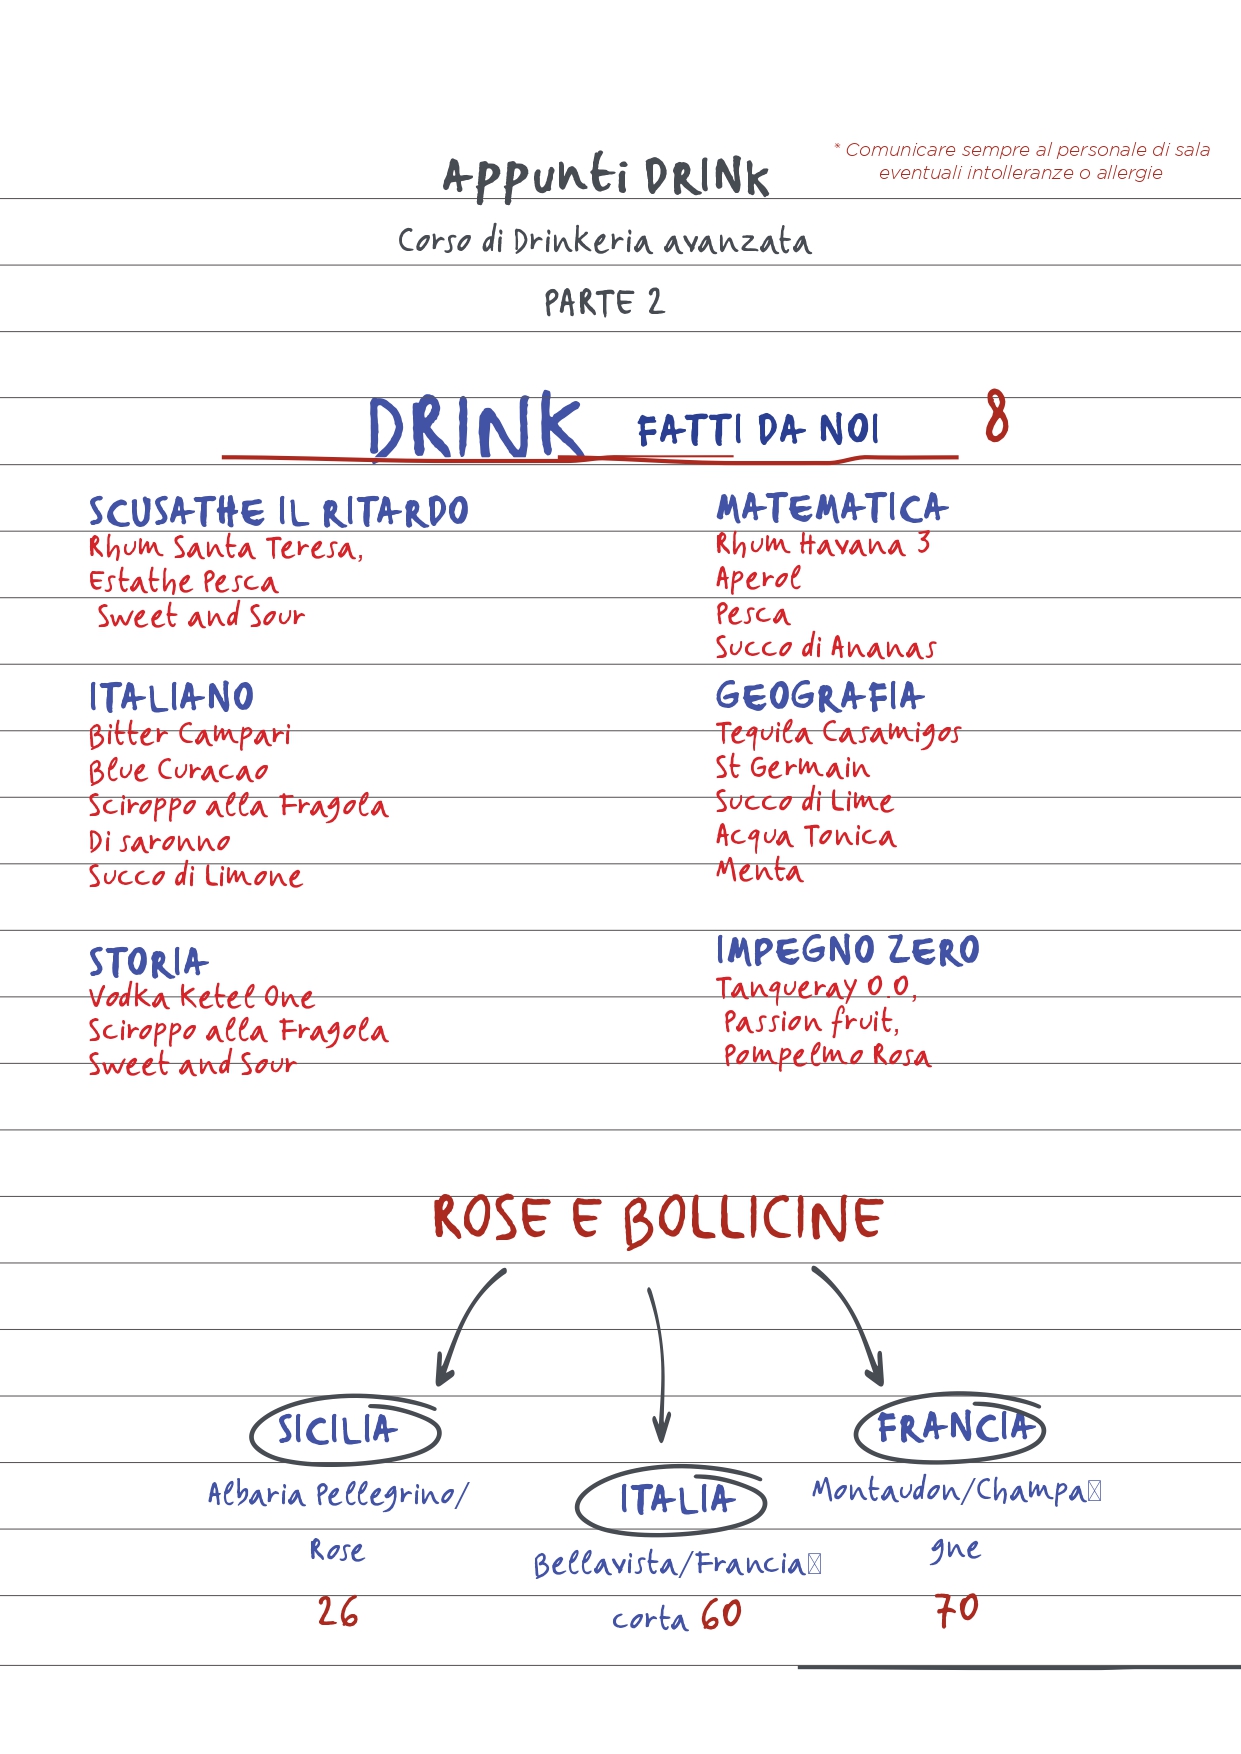 Appunti DRINK
* Comunicare sempre al personale di sala
eventuali intolleranze o allergie
Corso di Drinkeria avanzata
PARTE 2
DRINK FATTI DA NOI 8
SCUSATHE IL RITARDO
Rhum Santa Teresa,
Estathe Pesca
Sweet and Sour
MATEMATICA
Rhum Havana 3
Aperol
Pesca
Succo di Ananas
ITALIANO
Bitter Campari
Blue Curacao
Sciroppo alla Fragola
Di saronno
Succo di Limone
GEOGRAFIA
Tequila Casamigos
St Germain
Succo di Lime
Acqua Tonica
Menta
STORIA
Vodka Ketel One
Sciroppo alla Fragola
Sweet and Sour
IMPEGNO ZERO
Tanqueray 0.0,
Passion fruit,
Pompelmo Rosa
ROSE E BOLLICINE
SICILIA
Albaria Pellegrino/
Rose
26
ITALIA
Bellavista/Francia
corta 60
FRANCIA
Montaudon/Champa
gne
70